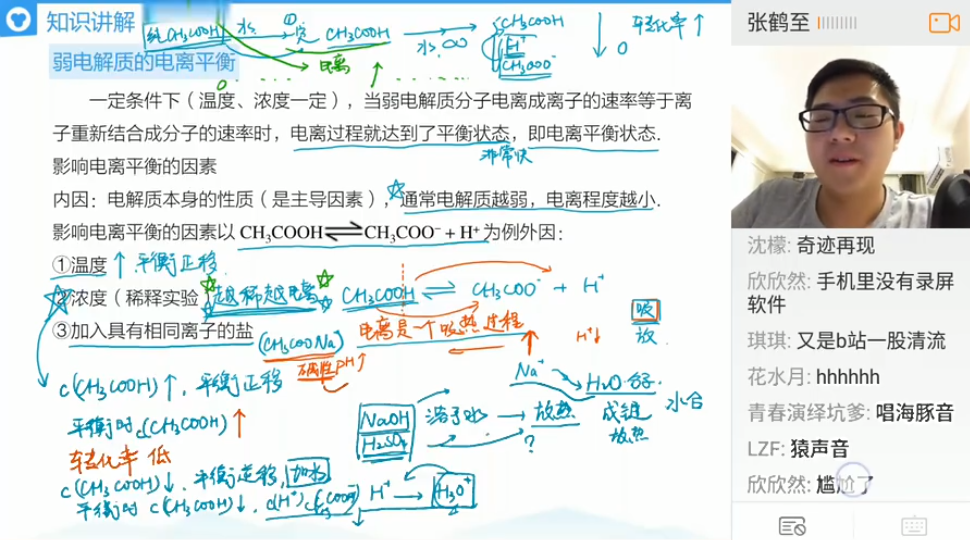 知识讲解
纯CH₃COOH 水 ① CH₃COOH 水 ∞ CH₃COOH
H⁺
CH₃COO⁻
0
转化率↑
电离
弱电解质的电离平衡
0
一定条件下（温度、浓度一定），当弱电解质分子电离成离子的速率等于离
子重新结合成分子的速率时，电离过程就达到了平衡状态，即电离平衡状态.
非常快
影响电离平衡的因素
内因：电解质本身的性质（是主导因素），通常电解质越弱，电离程度越小.
影响电离平衡的因素以 CH₃COOH⇌CH₃COO⁻ + H⁺ 为例外因：
①温度↑ 平衡正移.
②浓度（稀释实验） 越稀越电离 CH₃COOH ⇌ CH₃COO⁻ + H⁺
③加入具有相同离子的盐 (CH₃COONa) 电离是一个吸热过程
吸
放
H⁺↓
碱性 pH↑
c(CH₃COOH)↑, 平衡正移
Na⁺ H₂O分子.
NaOH
H₂SO₄
溶于水 → 放热
?
成键
放热
水合
平衡时 c(CH₃COOH)↑
转化率 低
c(CH₃COOH)↓. 平衡逆移, 加水
H⁺ → H₃O⁺
平衡时 c(CH₃COOH)↓. c(H⁺)
张鹤至
沈檬: 奇迹再现
欣欣然: 手机里没有录屏
软件
琪琪: 又是b站一股清流
花水月: hhhhhh
青春演绎坑爹: 唱海豚音
LZF: 猿声音
欣欣然: 尴尬了